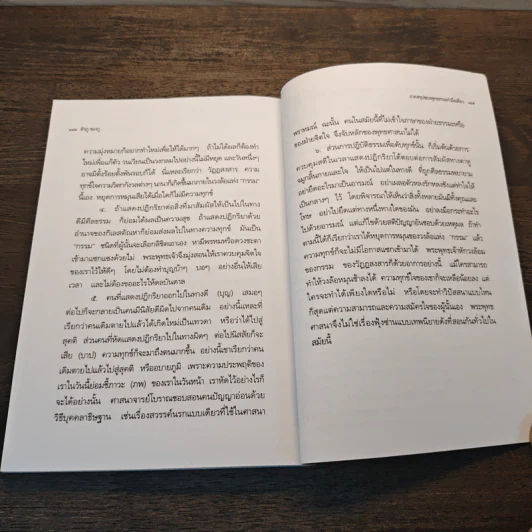 ความมุ่งหมายก็อยากทำใหม่เพื่อให้ได้มากๆ ถ้าไม่ได้ผลก็ต้องทำ
ใหม่เพื่อแก้ตัว วนเวียนเป็นวงกลมไปอย่างนี้ไม่มีหยุด และวันหนึ่งๆ
อาจมีตั้งร้อยตั้งพันรอบก็ได้ นี่แหละเรียกว่า วัฏฏสงสาร ความ
ทุกข์ใจความวิตกกังวลต่างๆ นานาก็เกิดขึ้นมาภายในวงล้อแห่ง "กรรม"
นี้เอง หยุดการหมุนเสียได้เมื่อใดก็ไม่มีความทุกข์
๔. ถ้าแสดงปฏิกิริยาต่อสิ่งที่มาสัมผัสให้เป็นไปในทาง
ดีมีศีลธรรม ก็ย่อมได้ผลเป็นความสุข ถ้าแสดงปฏิกิริยาด้วย
อำนาจของกิเลสตัณหาก็ย่อมส่งผลไปในทางความทุกข์ มันเป็น
"กรรม" ชนิดที่ผู้นั้นจะเลือกลิขิตเอาเอง หามีพรหมหรือดวงชะตา
เข้ามาแทรกแซงด้วยไม่ พระพุทธเจ้าจึงมุ่งสอนให้เราควบคุมจิตใจ
ของเราไว้ให้ดีๆ โดยไม่ต้องทำบุญบ้าๆ บอๆ อย่างอื่นให้เสีย
เวลา และไม่ต้องขออะไรให้ดลบันดาล
๕. คนที่แสดงปฏิกิริยาออกไปในทางดี (บุญ) เสมอๆ
ต่อไปก็จะกลายเป็นคนมีนิสัยดีผิดไปจากคนเดิม อย่างนี้แหละที่
เรียกว่าคนเดิมตายไปแล้วได้เกิดใหม่เป็นเทวดา หรือว่าได้ไปสู่
สุคติ ส่วนคนที่หัดแสดงปฏิกิริยาไปในทางผิดๆ ต่อไปนิสัยก็จะ
เสีย (บาป) ความทุกข์ก็จะมาถึงตนมากขึ้น อย่างนี้เขาเรียกว่าคน
เดิมตายไปแล้วไปสู่สุคติ หรืออบายภูมิ เพราะความประพฤติของ
เราในวันนี้ย่อมชี้ภาวะ (ภพ) ของเราในวันหน้า เราหัดไว้อย่างไรก็
จะได้อย่างนั้น ศาสนาจารย์โบราณชอบสอนคนปัญญาอ่อนด้วย
วิธีบุคคลาธิษฐาน เช่นเรื่องสวรรค์นรกแบบเดียวที่ใช้ในศาสนา
พราหมณ์ ฉะนั้น คนในสมัยนี้ที่ไม่เข้าใจภาษาของฝ่ายธรรมะหรือ
ของฝ่ายจิตใจ จึงจับหลักของพุทธศาสนาไม่ได้
๖. ส่วนการปฏิบัติธรรมเพื่อดับทุกข์นั้น ก็เริ่มต้นด้วยการ
ควบคุมสติในเวลาแสดงปฏิกิริยาโต้ตอบต่อการสัมผัสทางตาหู
จมูกลิ้นกายและใจ ให้เป็นไปแต่ในทางดี ที่ถูกศีลธรรมพยายาม
อย่ายึดอะไรมาเป็นอารมณ์ อย่างเลวตัวหลงรักหลงชังแต่ทำใจให้
เป็นกลางๆ ไว้ โดยพิจารณาให้เห็นว่าสิ่งทั้งหลายมันมีทั้งคุณและ
โทษ อย่าไปยึดแต่ทางหนึ่งทางใดของมัน อย่าลงมือกระทำอะไร
ไปด้วยอารมณ์ แต่แก้ไขด้วยสติปัญญาอันชอบด้วยเหตุผล ถ้าทำ
ตามนี้ได้ก็เรียกว่าเราได้หยุดการหมุนของวงล้อแห่ง "กรรม" แล้ว
ความทุกข์ก็จะไม่มีโอกาสแทรกเข้ามาได้ พระพุทธเจ้าหักวงล้อม
ของกรรม ของวัฏฏสงสารก็ด้วยอาการอย่างนี้ แม้ใครสามารถ
ทำให้วงล้อหมุนช้าลงได้ ความทุกข์ใจของเขาก็จะเหลือน้อยลง แต่
ใครจะทำได้เพียงใดหรือไม่ หรือโดยจะทำวิปัสสนาแบบไหน
ก็สุดแต่ความสามารถและความสมัครใจของผู้นั้นเอง พระพุทธ
ศาสนาจึงไม่ใช่เรื่องฟุ้งซ่านแบบเทพนิยายดังที่สอนกันทั่วไปใน
สมัยนี้